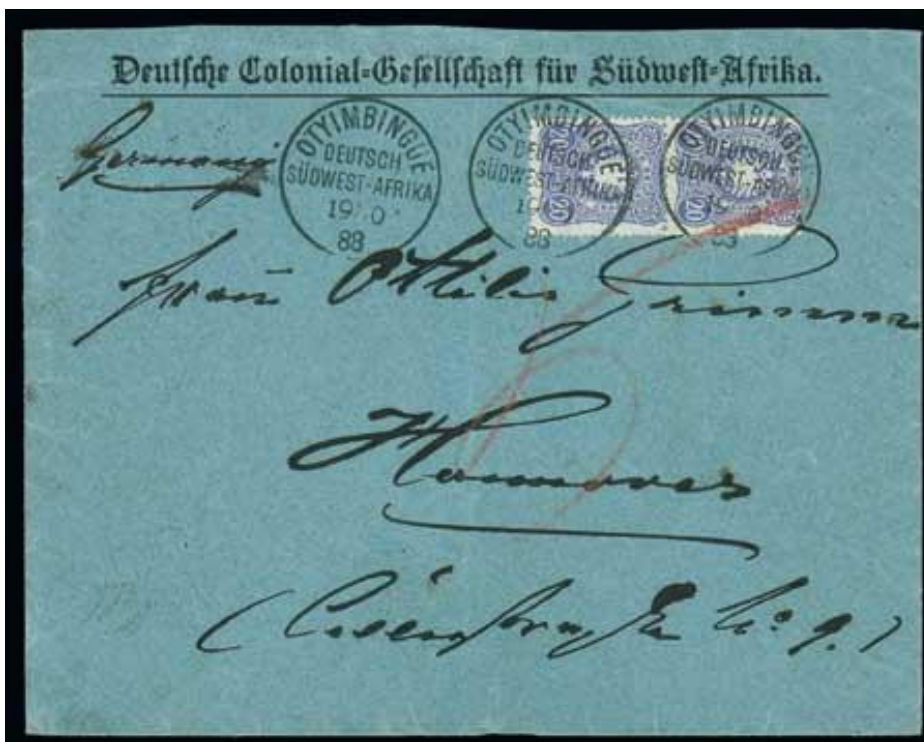 Deutsche Colonial-Gesellschaft für Südwest-Afrika.
Germany
OTYIMBINGUE
DEUTSCH
SÜDWEST-AFRIKA
88
OTYIMBINGUE
DEUTSCH
SÜDWEST-AFRIKA
88
OTYIMBINGUE
DEUTSCH
SÜDWEST-AFRIKA
88
20 20
Frau Ottilie
Hannover
No 9.)